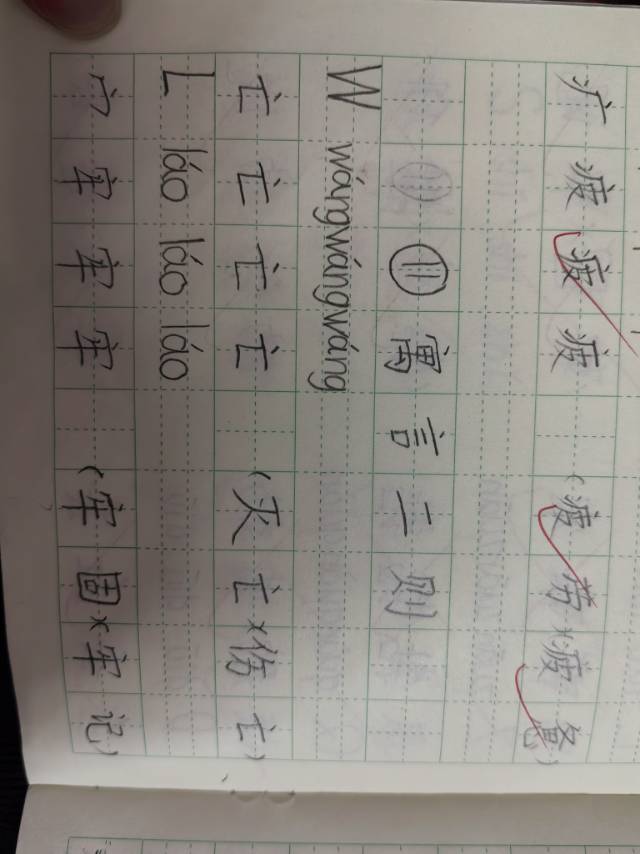 疒 疲 疲 疲 (疲劳)(疲惫)
寓言二则
W wángwángwáng
亡 亡 亡 亡 (灭亡)(伤亡)
L láo láo láo
宀 牢 牢 牢 (牢固)(牢记)